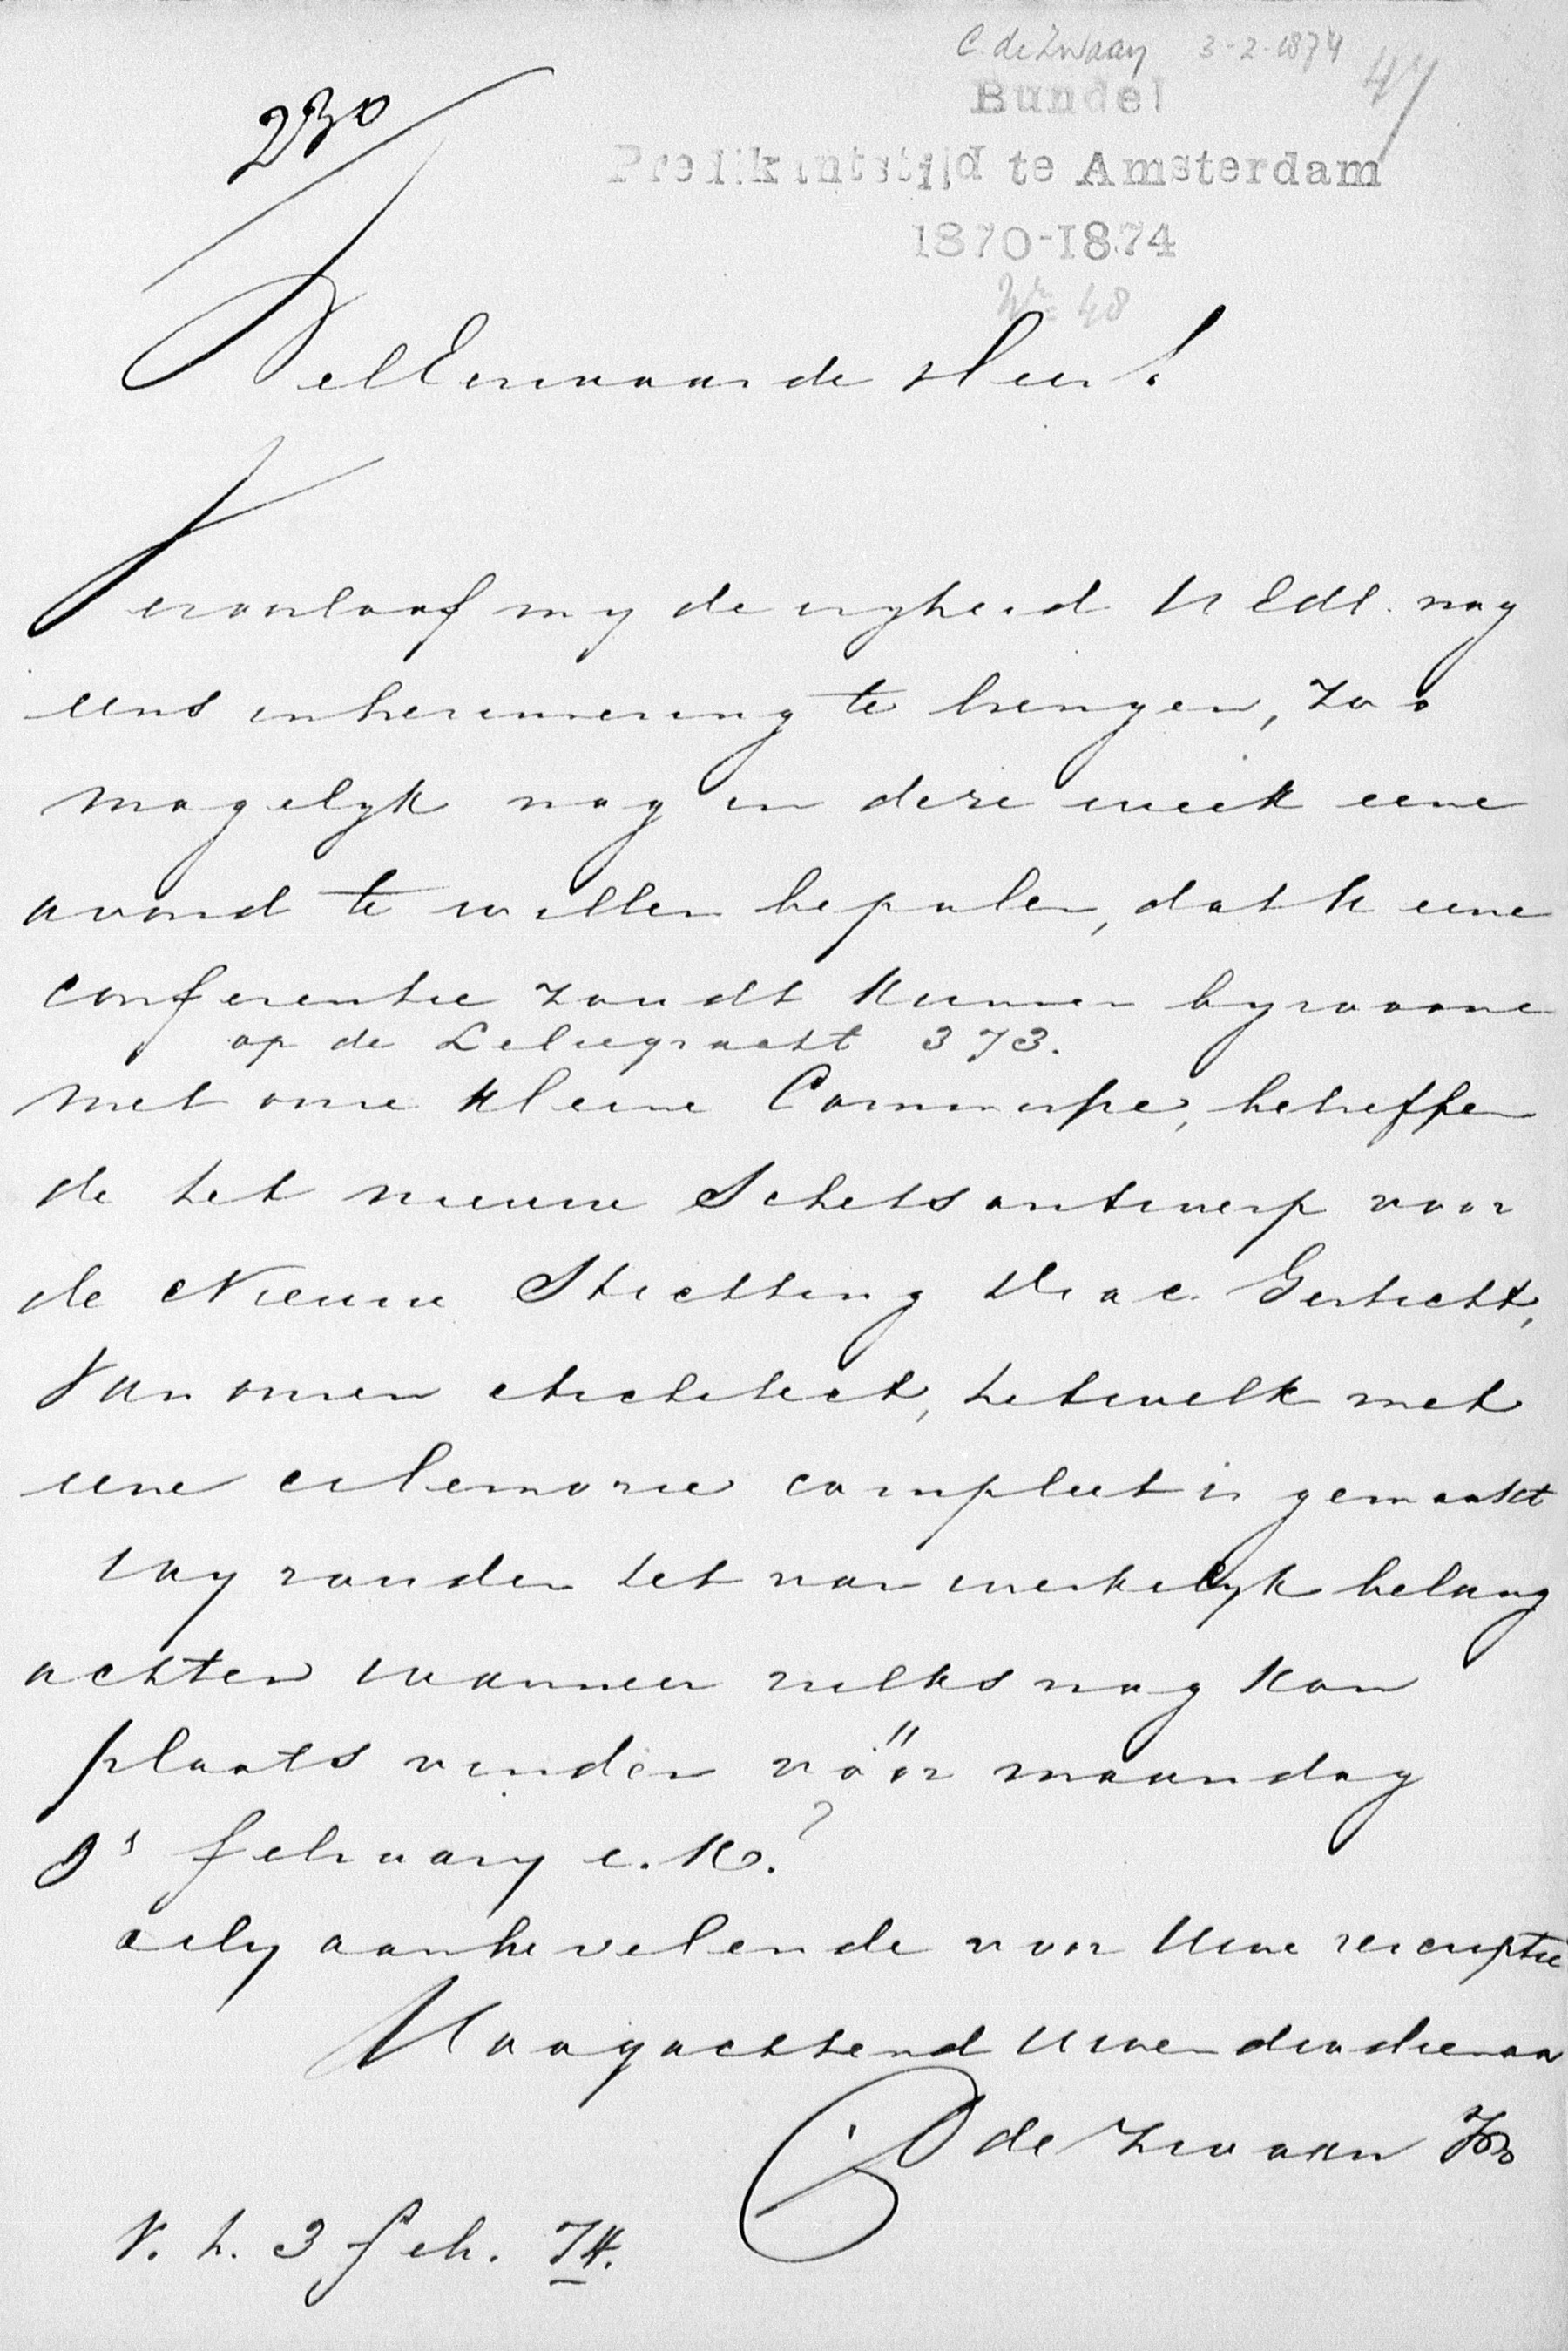 C. de Zwaan 3-2-1874
47
230
Bundel
Predikantstijd te Amsterdam
1870-1874
No 48
WelEerwaarde Heer!
Veroorloof my de vryheid UEdl. nog
eens in herinnering te brengen, zoo
mogelyk nog in deze week eene
avond te willen bepalen, dat U eene
conferentie zoudt kunnen bywoone
op de Leliegracht 373.
met onze kleine Commissie, betreffen
de het nieuwe Schetsontwerp voor
de Nieuwe Stichting Diac. Gesticht,
van onzen Architect, hetwelk met
eene Memorie compleet is gemaakt
Wy zouden het van werkelyk belang
achten wanneer zulks nog kon
plaats vinden vóór maandag
9s february e.k.?
My aanbevelende voor Uwe rescriptie
Hoogachtend Uwen dw dienaar
C de Zwaan Jz
V. h. 3 feb. 74.